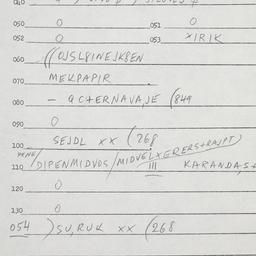 050 0 051 0
052 0 053 XIRIK
060 ((OJSL8INEJK8EN
070 MEKPAPIR
080 - ACTERNAVAJE (849
090 0
SEJDL XX (268
100
110 DIPENMIDVOS/MIDVELXERERSTRAJPT)
III KARANDAS+
120 0
130 0
054 )SU,RUK XX (268